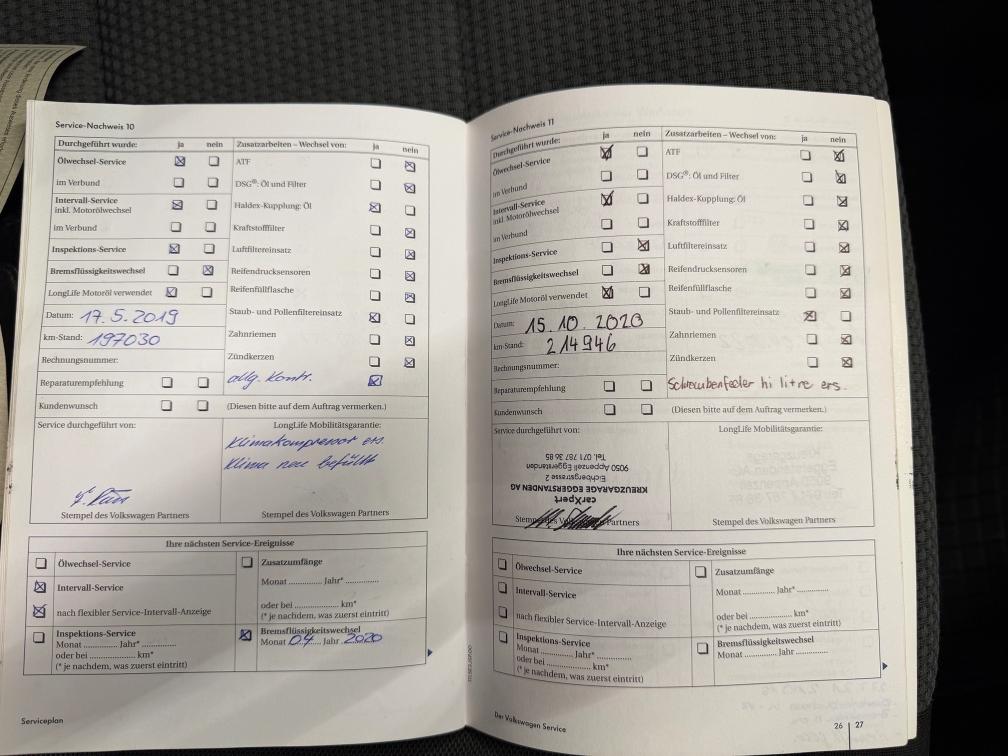 Service-Nachweis 10
Durchgeführt wurde: ja nein Zusatzarbeiten – Wechsel von: ja nein
Ölwechsel-Service ATF
im Verbund DSG®: Öl und Filter
Intervall-Service Haldex-Kupplung: Öl
inkl. Motorölwechsel
im Verbund Kraftstofffilter
Inspektions-Service Luftfiltereinsatz
Bremsflüssigkeitswechsel Reifendrucksensoren
LongLife Motoröl verwendet Reifenfüllflasche
Datum: 17.5.2019 Staub- und Pollenfiltereinsatz
km-Stand: 197030 Zahnriemen
Rechnungsnummer: Zündkerzen
Reparaturempfehlung allg. Kontr.
Kundenwunsch (Diesen bitte auf dem Auftrag vermerken.)
Service durchgeführt von: LongLife Mobilitätsgarantie:
Klimakompressor ers.
Klima neu befüllt
Stempel des Volkswagen Partners Stempel des Volkswagen Partners
Ihre nächsten Service-Ereignisse
Ölwechsel-Service Zusatzumfänge
Intervall-Service Monat ............ Jahr* ............
nach flexibler Service-Intervall-Anzeige oder bei ............ km*
(* je nachdem, was zuerst eintritt)
Inspektions-Service Bremsflüssigkeitswechsel
Monat ............ Jahr* ............ Monat 04 Jahr 2020
oder bei ............ km*
(* je nachdem, was zuerst eintritt)
Serviceplan
Service-Nachweis 11
Durchgeführt wurde: ja nein Zusatzarbeiten – Wechsel von: ja nein
Ölwechsel-Service ATF
im Verbund DSG®: Öl und Filter
Intervall-Service Haldex-Kupplung: Öl
inkl. Motorölwechsel
im Verbund Kraftstofffilter
Inspektions-Service Luftfiltereinsatz
Bremsflüssigkeitswechsel Reifendrucksensoren
LongLife Motoröl verwendet Reifenfüllflasche
Datum: 15.10.2020 Staub- und Pollenfiltereinsatz
km-Stand: 214946 Zahnriemen
Rechnungsnummer: Zündkerzen
Reparaturempfehlung Schraubenfeder hi litre ers.
Kundenwunsch (Diesen bitte auf dem Auftrag vermerken.)
Service durchgeführt von: LongLife Mobilitätsgarantie:
carXpert
KREUZGARAGE EGGERSTANDEN AG
Eichbergstrasse 2
9050 Appenzell Eggerstanden
Tel. 071 787 36 85
Stempel des Volkswagen Partners Stempel des Volkswagen Partners
Ihre nächsten Service-Ereignisse
Ölwechsel-Service Zusatzumfänge
Intervall-Service Monat ............ Jahr* ............
nach flexibler Service-Intervall-Anzeige oder bei ............ km*
(* je nachdem, was zuerst eintritt)
Inspektions-Service Bremsflüssigkeitswechsel
Monat ............ Jahr* ............ Monat ............ Jahr ............
oder bei ............ km*
(* je nachdem, was zuerst eintritt)
Der Volkswagen Service 26 | 27